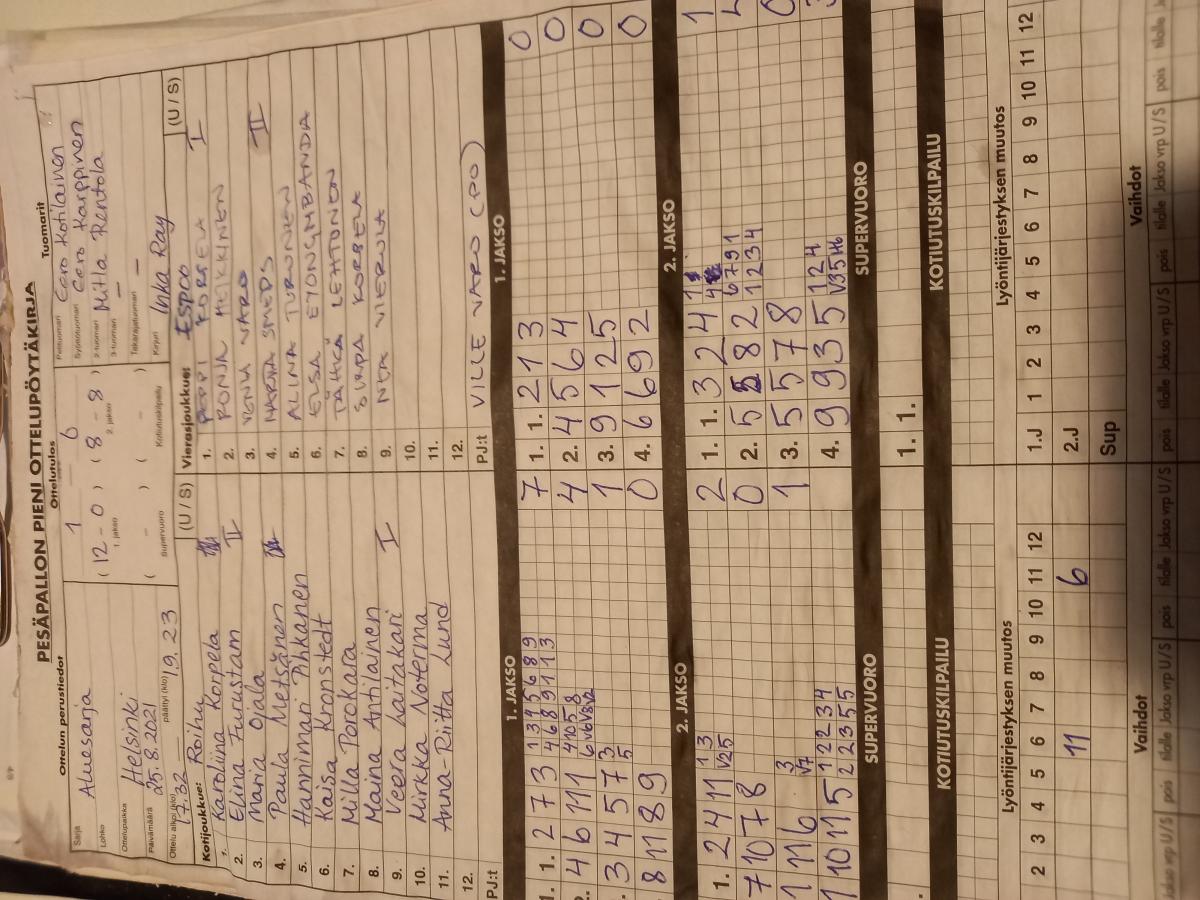 PESÄPALLON PIENI OTTELUPÖYTÄKIRJA
Ottelun perustiedot
Ottelutulos
Tuomarit
Sarja Aluesarja
Lohko
Ottelupaikka Helsinki
Päivämäärä 25.8.2021
Ottelu alkoi (klo) 17.32 päättyi (klo) 19.23
1 6
(12 - 0) (8 - 8)
1. jakso 2. jakso
( - ) ( - )
Supervuoro Kotiutuskilpailu
Pelituomari Eero Kotilainen
Syöttötuomari Eero Karppinen
2-tuomari
3-tuomari —
Takarajatuomari —
Kirjuri Inka Ray
Kotijoukkue: Roihu (U / S)
1. Karoliina Korpela
2. Elina Turustam II
3. Maria Ojala
4. Paula Metsänen
5. Hannimari Pihkanen
6. Kaisa Kronstedt
7. Milla Porokara
8. Maina Antilainen
9. Veera Laitakari I
10. Mirkka Noterma
11. Anna-Riitta Lund
12.
PJ:t
Vierasjoukkue: Espoo (U / S)
1. PEPPI KORBELA I
2. RONJA HEIKKINEN
3. VENLA VARO
4. MARIA SMEDS II
5. ALIINA TURUNEN
6. ELSA ETONGHBANDA
7. LEHTONEN
8. KORBELA
9. NEA VIERULA
10.
11.
12.
PJ:t VILLE VARO (PO)
1. JAKSO
1. 1. 2 7 3 1 3 4 5 6 8 9 7
4 6 8 9 11 1 3
2. 4 6 11 1 4 10 5 8 4
3. 3 4 5 7 3 1
5
8 11 8 9 0
1. JAKSO
1. 1. 2 1 3 0
2. 4 5 6 4 0
3. 9 1 2 5 0
4. 6 6 9 2 0
2. JAKSO
1. 2 4 11 1 3 2
V2 5
7 10 7 8 0
1 11 6 3 1
V7
1 10 11 5 1 2 2 3 4
2 2 3 5 5
2. JAKSO
1. 1. 3 2 4 1
2. 5 5 8 2 6 7 9 1
1 2 3 4
3. 5 5 7 8 0
4. 9 9 3 5 1 2 4
V3 5 H6
SUPERVUORO
SUPERVUORO
1. 1.
KOTIUTUSKILPAILU
KOTIUTUSKILPAILU
Lyöntijärjestyksen muutos
2 3 4 5 6 7 8 9 10 11 12
11 6
Lyöntijärjestyksen muutos
1.J 1 2 3 4 5 6 7 8 9 10 11 12
2.J
Sup
Vaihdot
Jakso vrp U/S pois tilalle Jakso vrp U/S pois tilalle Jakso vrp U/S
Vaihdot
pois tilalle Jakso vrp U/S pois tilalle Jakso vrp U/S pois tilalle